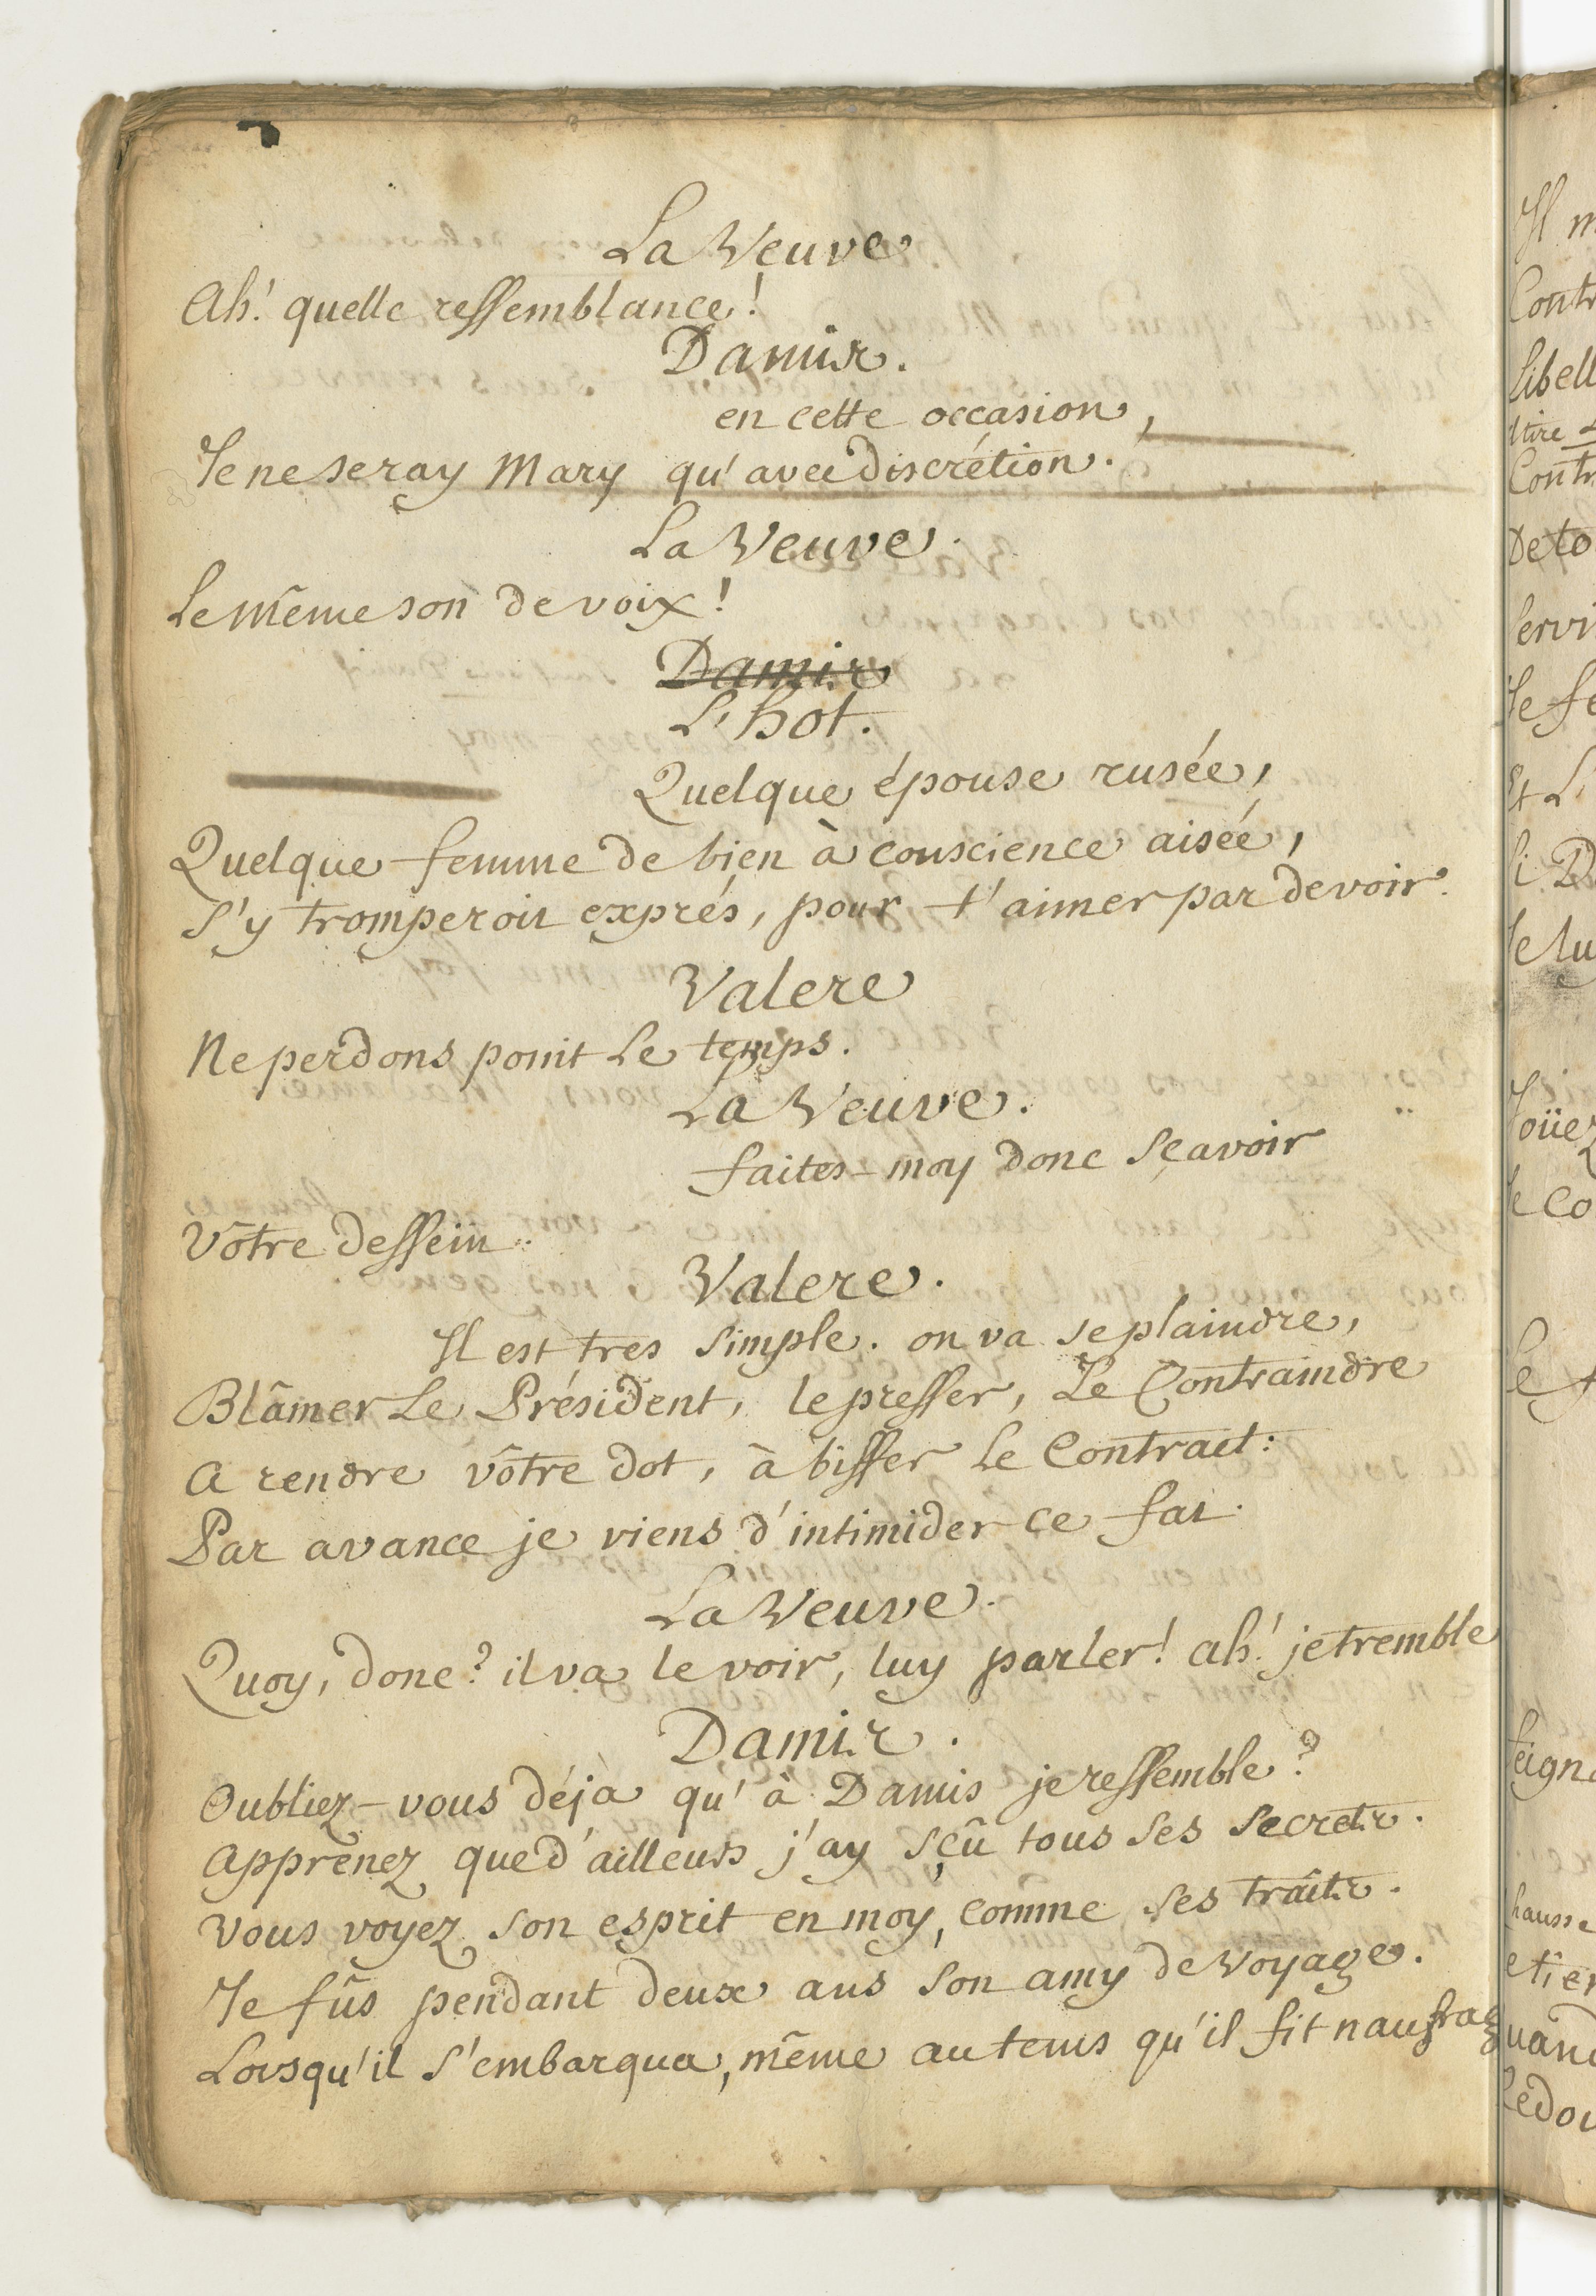 La Veuve
Ah! quelle ressemblance!
Damis.
en cette occasion,
Je ne seray Mary qu'avec discrétion.
La Veuve.
Le même son de voix!
Damis
L'hot.
Quelque épouse rusée,
Quelque femme de bien à conscience aisée,
S'y tromperoit exprés, pour t'aimer par devoir.
Valere
Ne perdons point Le temps.
La Veuve.
faites-moy donc sçavoir
Vôtre dessein.
Valere.
Il est tres simple. on va se plaindre,
Blâmer Le Président, le presser, Le Contraindre
A rendre vôtre dot, à biffer Le Contract:
Par avance je viens d'intimider ce fat.
La Veuve.
Quoy, donc? il va le voir, luy parler! ah! je tremble
Damis.
Oubliez-vous déja qu'à Damis je ressemble?
Apprenez que d'ailleurs j'ay sçû tous ses secrets.
Vous voyez son esprit en moy, comme ses traits.
Je fûs pendant deux ans son amy de voyage.
Lorsqu'il s'embarqua, même au tems qu'il fit naufrag
Il m
Contr
Libell
Contr
De to
servi
Je fe
Et L'
si D
Je lu
Joüez
Je co
Le
feign
hausse
etier
uand
Redou